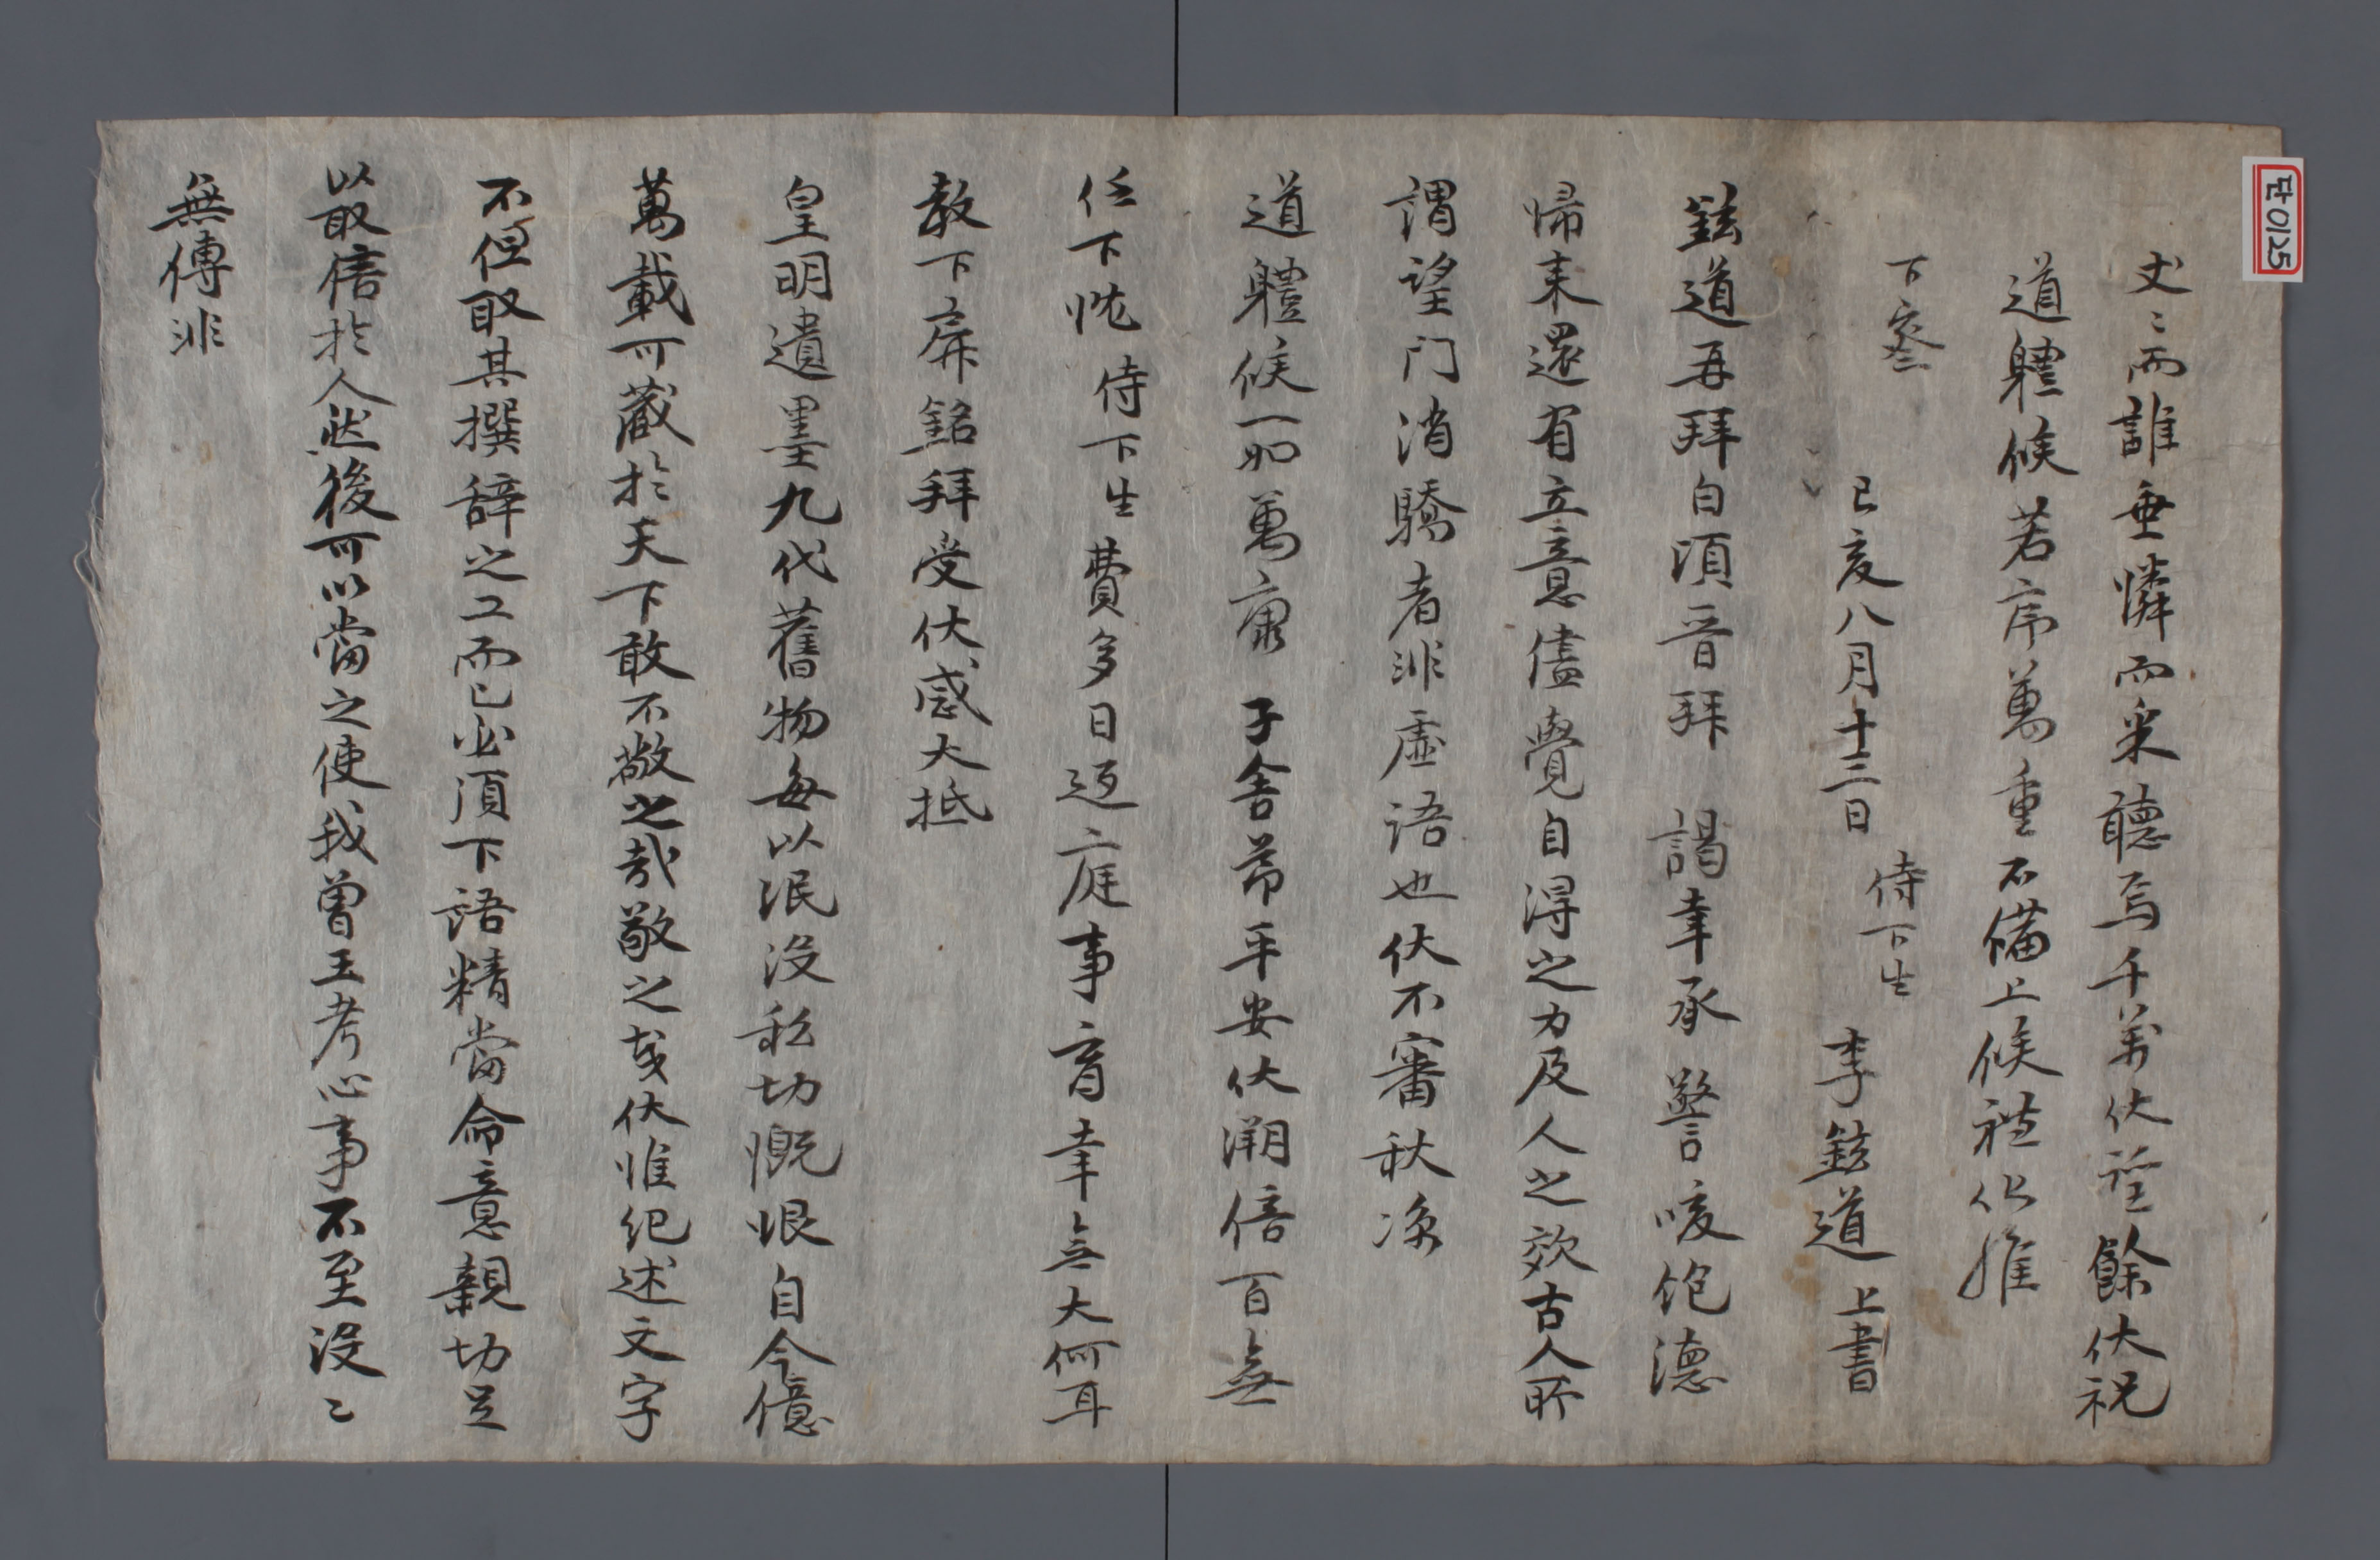 단0125
丈〻而誰垂憐而采聽焉千萬伏望餘伏祝
道軆候若序萬重不備上候禮伏惟
下察
己亥八月十三日 侍下生 李鉉道 上書
鉉道再拜白頃晋拜 謁幸承 警咳飽德
歸来還有立意儘覺自得之力及人之效古人所
謂望门消驕者非虛語也伏不審秋凉
道軆候一如萬康 子舍節平安伏溯倍百無
任下忱 侍下生費多日返庭事育幸無大何耳
教下屛銘拜受伏感大抵
皇明遺墨九代舊物每以泯沒私切慨恨自今億
萬載可藏於天下敢不敬之哉敬之哉伏惟紀述文字
不但取其撰辞之工而已必須下語精當命意親切足
以取信於人然後可以當之使我曾王考心事不至没〻
無傳非